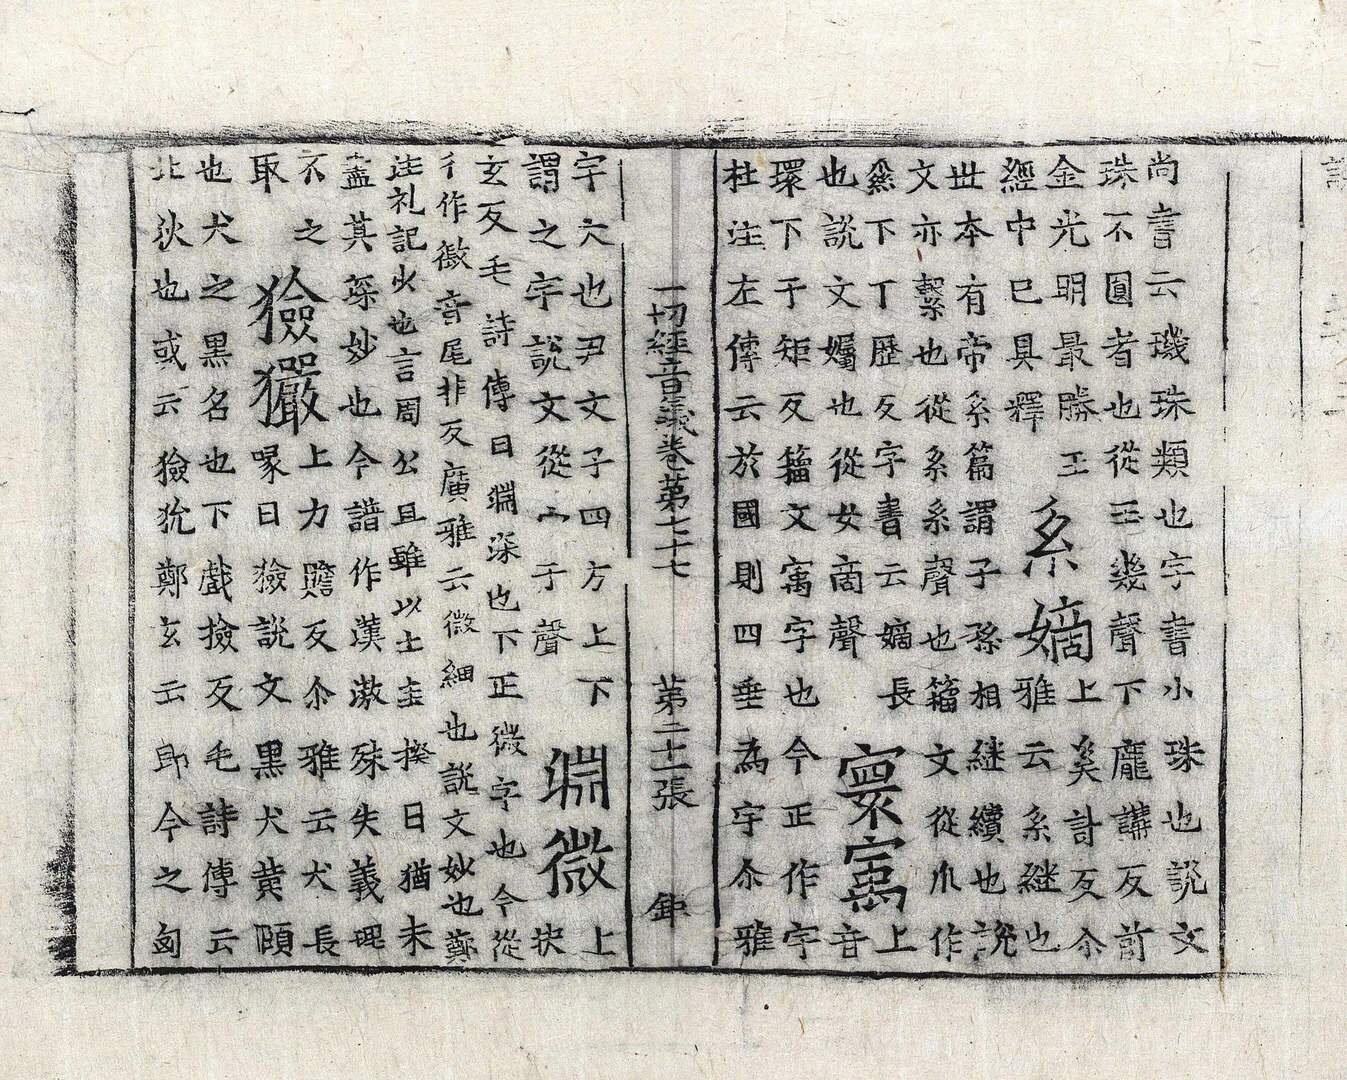 尚書云璣珠類也字書小珠也說文
珠不圓者也從王幾聲下龐講反前
金光明最勝王
經中已具釋
系嫡
上奚計反尒
雅云系継也
世本有帝系篇謂子孫相継續也說
文亦繫也從系系聲也籀文從爪作
下丁歷反字書云嫡長
也說文孎也從女啇聲
寰㝢
上
音
環下于矩反籀文㝢字也今正作宇
杜注左傳云於國則四垂為宇尒雅
一切經音義卷第七十七 第二十一張 鉅
宇大也尹文子四方上下
謂之宇說文從宀于聲
淵微
上
抉
玄反毛詩傳曰淵深也下正微字也今從
彳作微音尾非反廣雅云微細也說文妙也鄭
注礼記少也言周公且雖以土圭揆日猶未
盡其深妙也今譜作漢漖殊失義理
不之
取
獫玁
上力贍反尒雅云犬長
喙曰獫說文黑犬黃頤
也犬之黑名也下戲撿反毛詩傳云
北狄也或云獫狁鄭玄云即今之匈